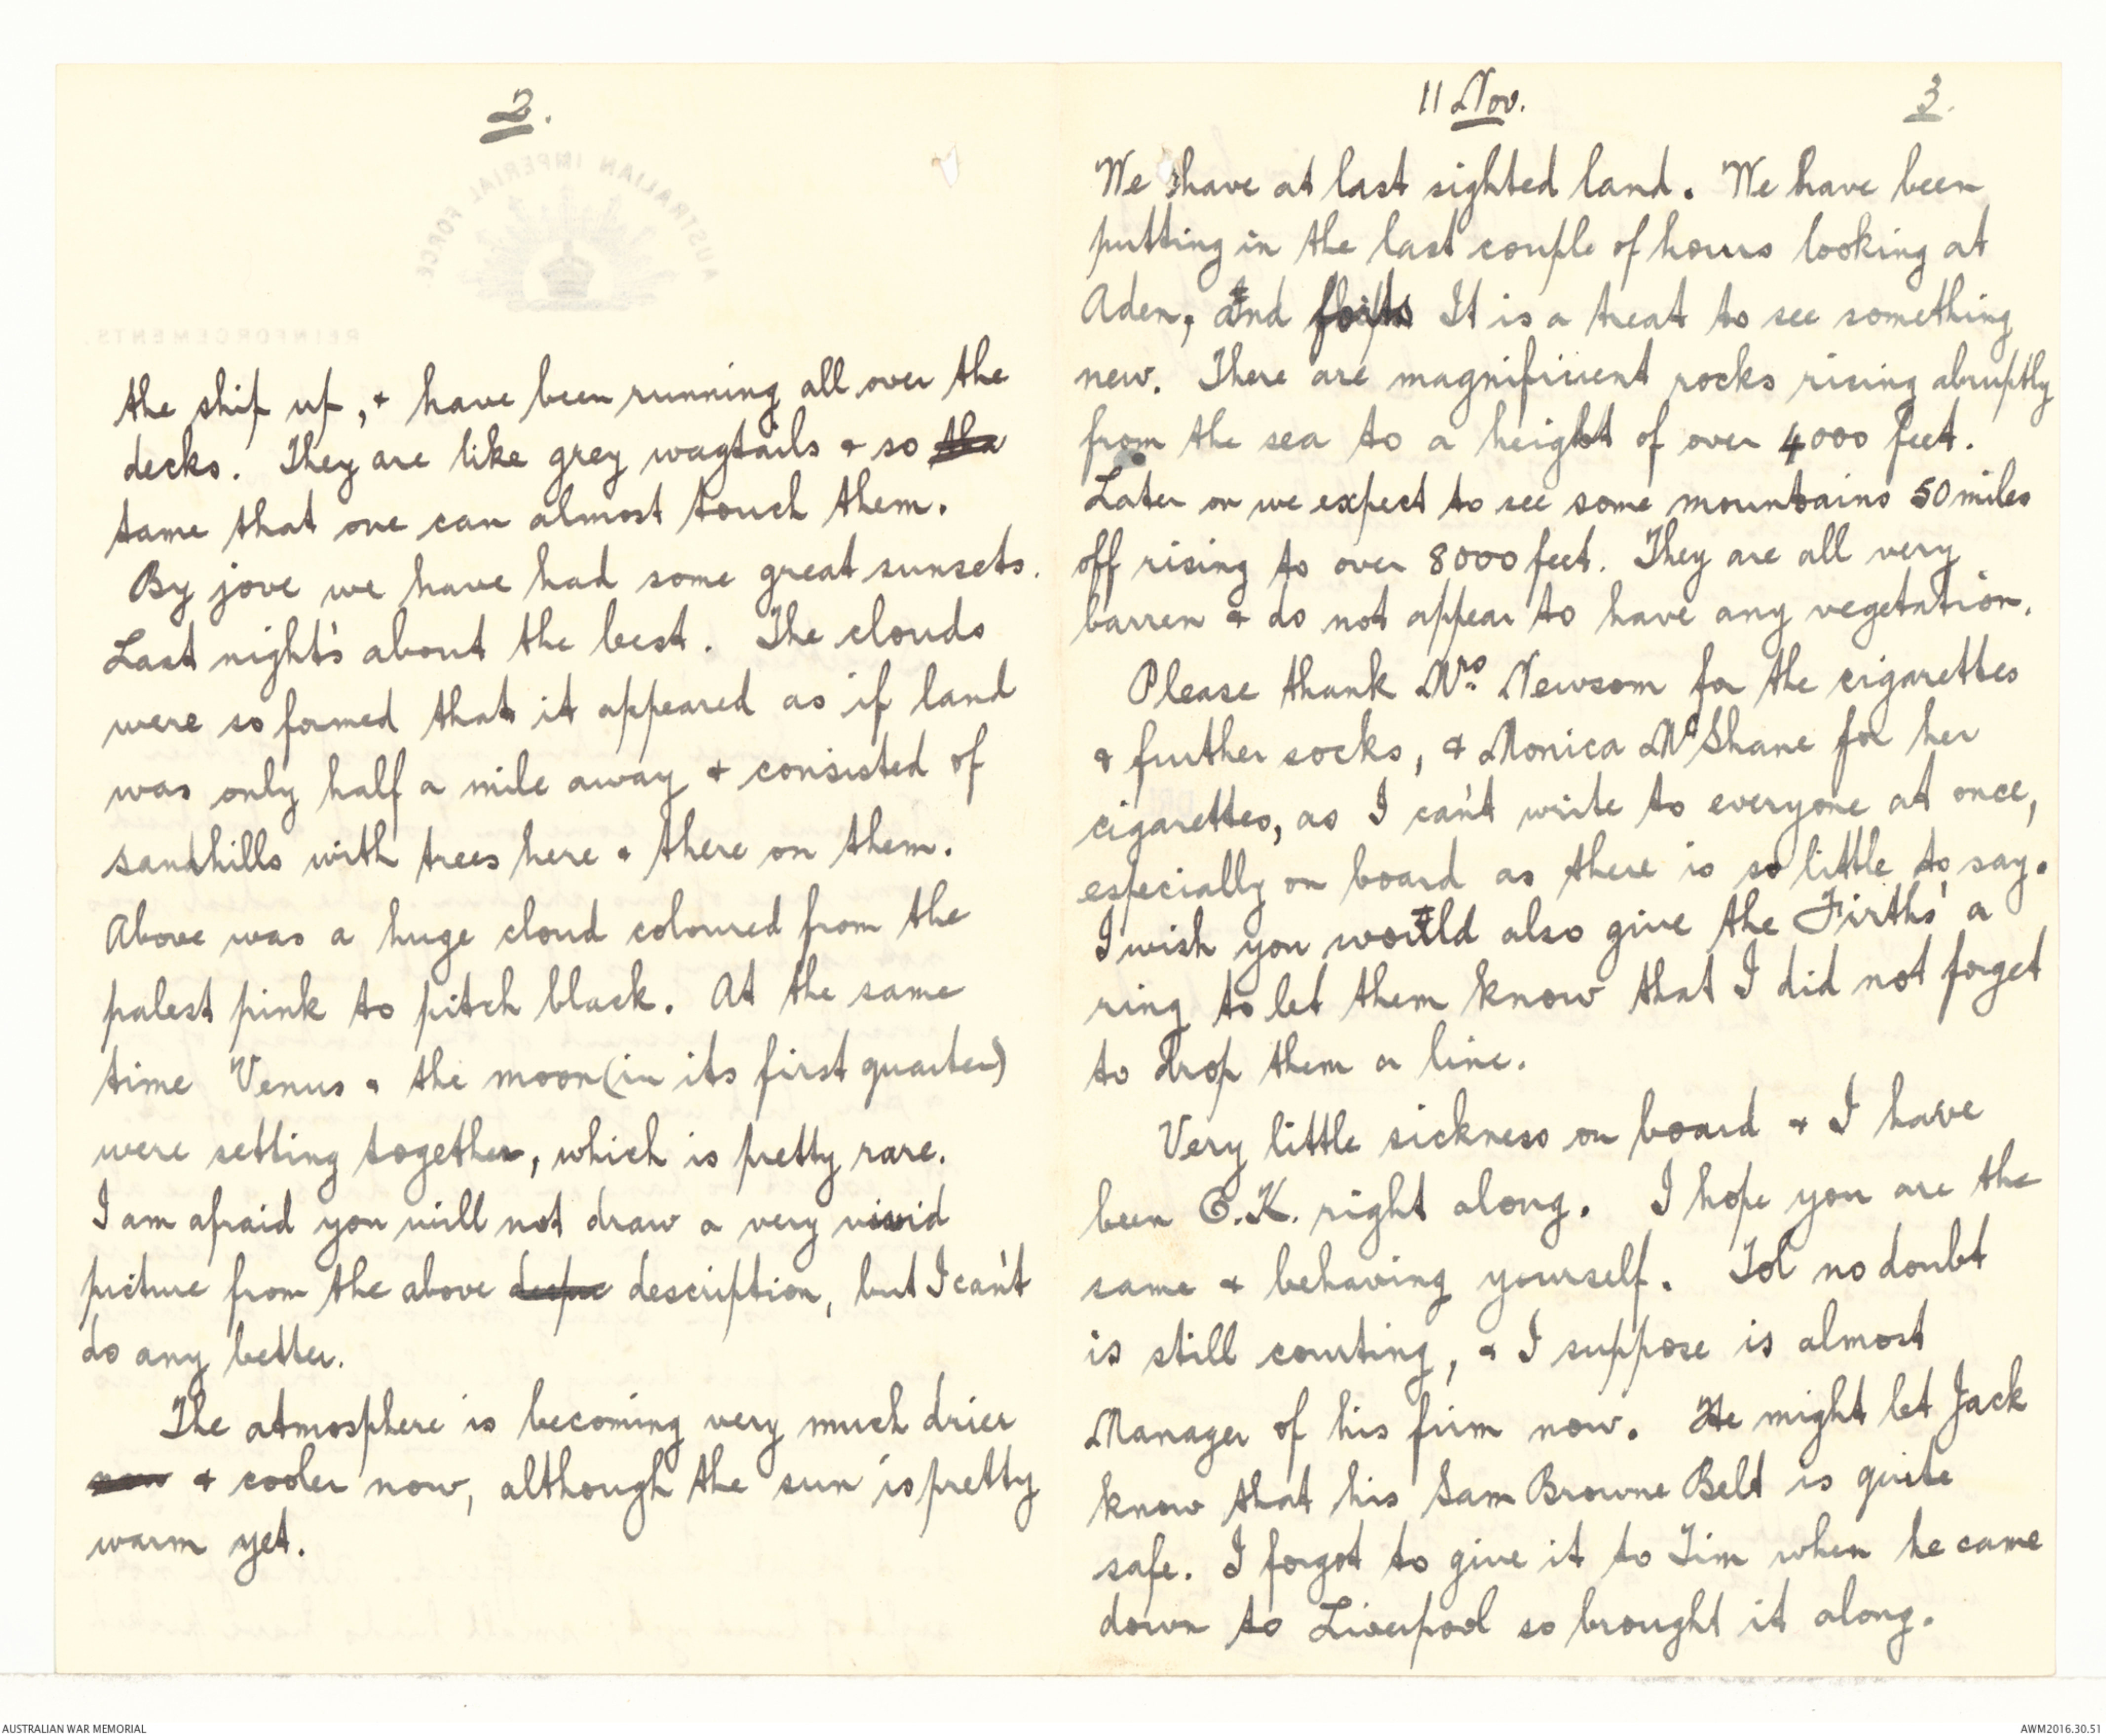 2.
the ship up, & have been running all over the
decks. They are like grey wagtails & so the
tame that one can almost touch them.
By jove we have had some great sunsets.
Last night's about the best. The clouds
were so formed that it appeared as if land
was only half a mile away & consisted of
sandhills with trees here & there on them.
Above was a huge cloud coloured from the
palest pink to pitch black. At the same
time Venus & the moon (in its first quarter)
were setting together, which is pretty rare.
I am afraid you will not draw a very vivid
picture from the above description, but I can't
do any better.
The atmosphere is becoming very much drier
& cooler now, although the sun is pretty
warm yet.
AUSTRALIAN IMPERIAL FORCE
REINFORCEMENTS.
11 Nov.
3.
We have at last sighted land. We have been
putting in the last couple of hours looking at
Aden, and forts It is a treat to see something
new. There are magnificent rocks rising abruptly
from the sea to a height of over 4000 feet.
Later on we expect to see some mountains 50 miles
off rising to over 8000 feet. They are all very
barren & do not appear to have any vegetation.
Please thank Mrs. Newsom for the cigarettes
& further socks, & Monica McShane for her
cigarettes, as I can't write to everyone at once,
especially on board as there is so little to say.
I wish you would also give the Firths' a
ring to let them know that I did not forget
to drop them a line.
Very little sickness on board & I have
been O.K. right along. I hope you are the
same & behaving yourself. Tol no doubt
is still courting, & I suppose is almost
Manager of his firm now. He might let Jack
know that his Sam Browne Belt is quite
safe. I forgot to give it to Tim when he came
down to Liverpool so brought it along.
AUSTRALIAN WAR MEMORIAL
AWM2016.30.51